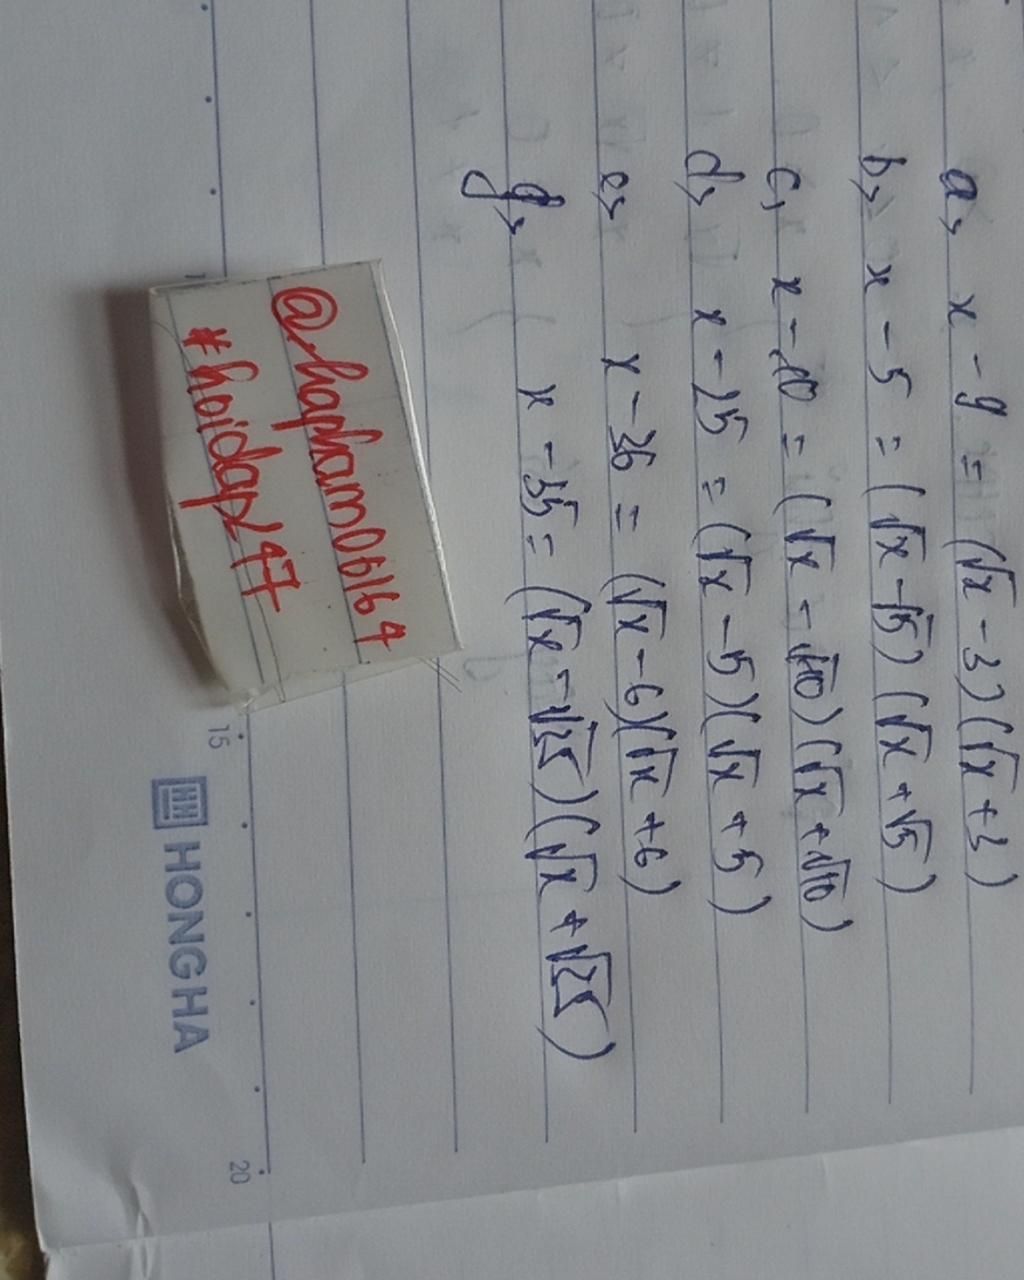 a, x - 9 = (√x - 3)(√x + 3)
b, x - 5 = (√x - √5)(√x + √5)
c, x - 10 = (√x - √10)(√x + √10)
d, x - 25 = (√x - 5)(√x + 5)
e, x - 36 = (√x - 6)(√x + 6)
g, x - 35 = (√x - √35)(√x + √35)
@hapham06164
#hoidap247
15
20
HONG HA